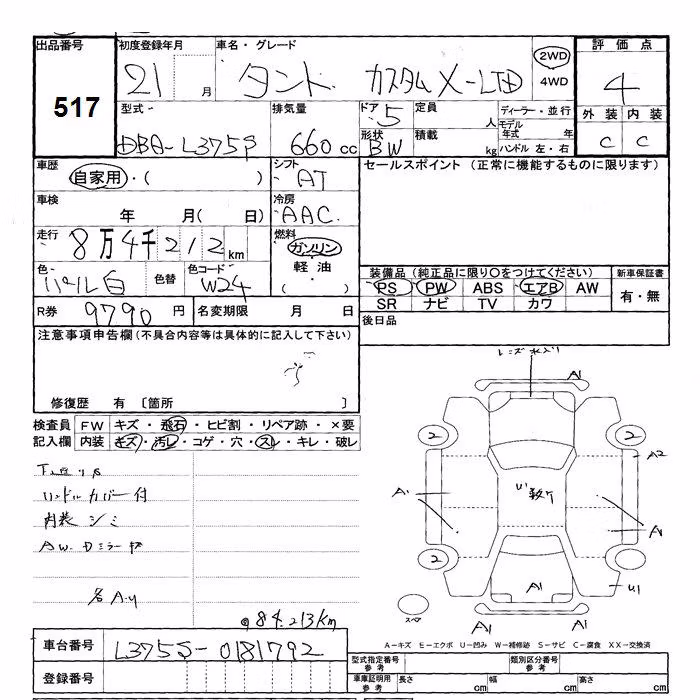 出品番号 初度登録年月 車名・グレード 評価点
517 21 月 タント カスタム X-LTD 2WD 4WD 4
型式 排気量 ドア 定員 ディーラー・並行 外装 内装
DBA-L375S 660 cc 5 人 モデル年式 年 C C
形状 積載 ハンドル 左・右
BW kg
車歴 シフト セールスポイント (正常に機能するものに限ります)
自家用・( ) AT
車検 冷房
年 月( 日) AAC
走行 燃料
8万4千212km ガソリン
軽油
色 色替 色コード ( )
パール白 W24
装備品 (純正品に限り○をつけてください) 新車保証書
PS PW ABS エアB AW 有・無
SR ナビ TV カワ
R券 9790 円 名変期限 月 日 後日品
注意事項申告欄 (不具合内容等は具体的に記入して下さい)
修復歴 有 〔箇所 〕
検査員 FW キズ・飛石・ヒビ割・リペア跡・×要
記入欄 内装 キズ・汚レ・コゲ・穴・スレ・キレ・破レ
ハンドルカバー付
内装 シミ
@84.213km
A1
2 2 A2
A1 A1
2
A1 U1
スペア A1 A1
A-キズ E-エクボ U-凹み W-補修跡 S-サビ C-腐食 XX-交換済
車台番号 L375S-0181792
登録番号
型式指定番号 参考 類別区分番号 参考
車庫証明用 参考 長さ cm 幅 cm 高さ cm